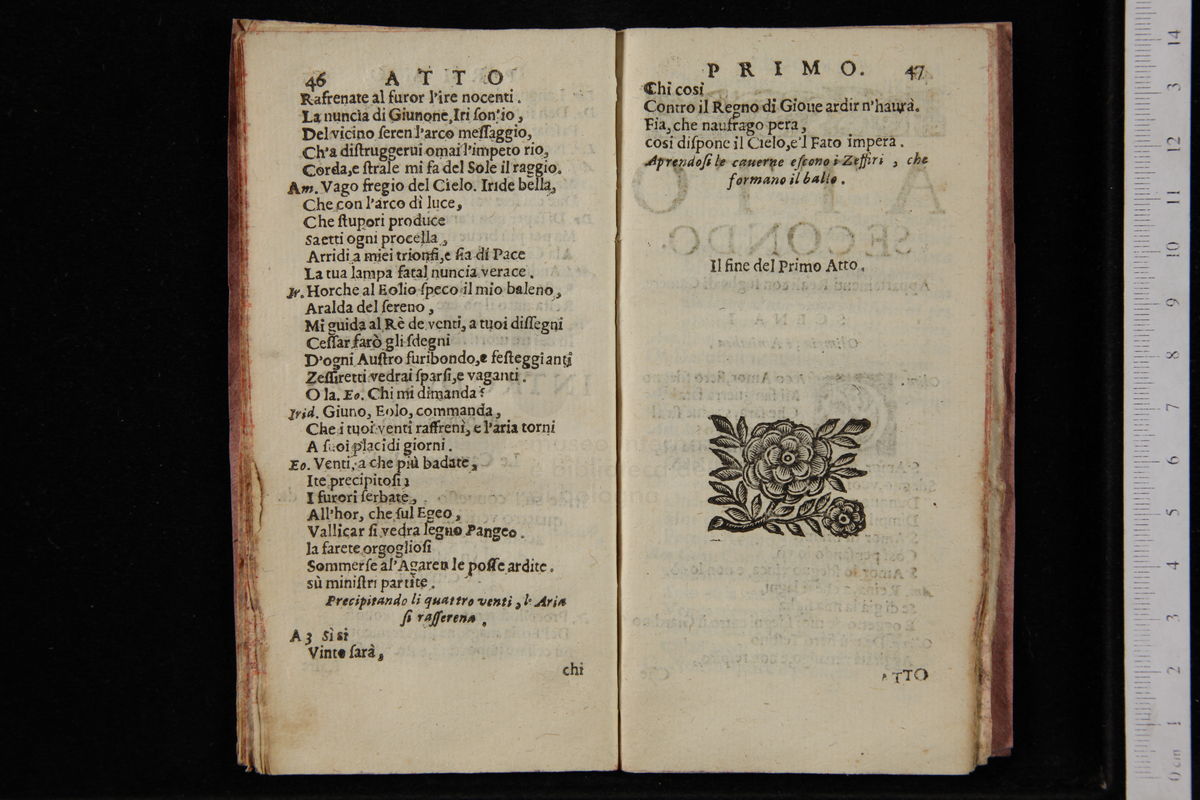 46 ATTO
Rafrenate al furor l'ire nocenti.
La nuncia di Giunone, Iri son'io,
Del vicino seren l'arco messaggio,
Ch'a distruggerui omai l'impeto rio,
Corda, e strale mi fa del Sole il raggio.
Am. Vago fregio del Cielo. Iride bella,
Che con l'arco dì luce,
Che stupori produce
Saetti ogni procella,
Arridi a miei trionfi, e sia di Pace
La tua lampa fatal nuncia verace.
Ir. Horche al Eolio speco il mio baleno,
Aralda del sereno,
Mi guida al Rè de venti, a tuoi dissegni
Cessar farò gli sdegni
D'ogni Austro furibondo, e festeggianti
Zeffiretti vedrai sparsi, e vaganti.
O la. Eo. Chi mi dimanda?
Irid. Giuno, Eolo, commanda,
Che i tuoi venti raffreni, e l'aria torni
A suoi placidi giorni.
Eo. Venti, a che più badate,
Ite precipitosi,
I furori serbate,
All'hor, che sul Egeo,
Vallicar si vedra segno Pangeo.
la farete orgogliosi
Sommerse al'Agaren le posse ardite.
sù ministri partite.
Precipitando li quattro venti, l'Aria
si rafferena.
A 3 Sì si
Vinto sarà,
chi
PRIMO. 47
Chi cosi
Contro il Regno di Gioue ardir n'haurà.
Fia, che naufrago pera,
cosi dispone il Cielo, e'l Fato impera.
Aprendosi le cauerne escono i Zeffiri, che
formano il ballo.
Il fine del Primo Atto.
ATTO
14
13
12
11
10
9
8
7
6
5
4
3
2
1
0 cm